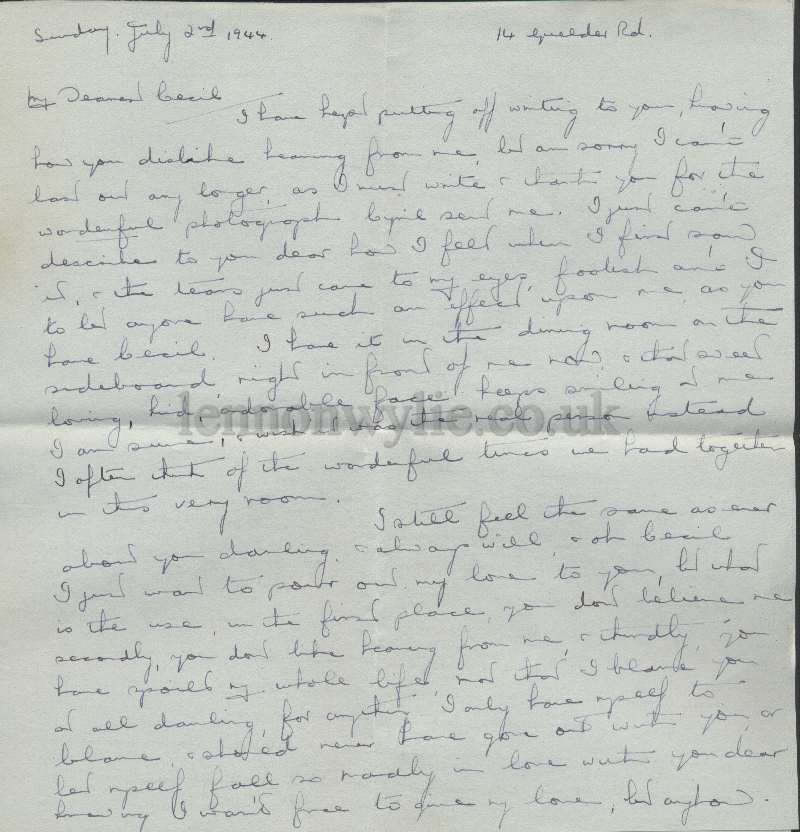 Sunday. July 2nd 1944. 14 Guelder Rd.
My Dearest Cecil
I have kept putting off writing to you, knowing
how you dislike hearing from me, but am sorry I can't
last out any longer, as I must write & thank you for the
wonderful photograph Cyril sent me. I just can't
describe to you dear how I felt when I first saw
it, & the tears just came to my eyes, foolish ain't I
to let anyone have such an effect upon me, as you
have Cecil. I have it in the dining room on the
sideboard, right in front of me now, & that sweet
loving, kind, adorable face keeps smiling at me
I am sure, & wish it was the real person instead
I often think of the wonderful times we had together
in this very room.
I still feel the same as ever
about you darling, & always will, & oh Cecil
I just want to pour out my love to you, but what
is the use, in the first place, you don't believe me
secondly, you don't like hearing from me, & thirdly, you
have spoilt my whole life, not that I blame you
at all darling, for anything I only have myself to
blame, & should never have gone out with you, or
let myself fall so madly in love with you dear
knowing I wasn't free to give my love, but anyhow.
lennonwylie.co.uk